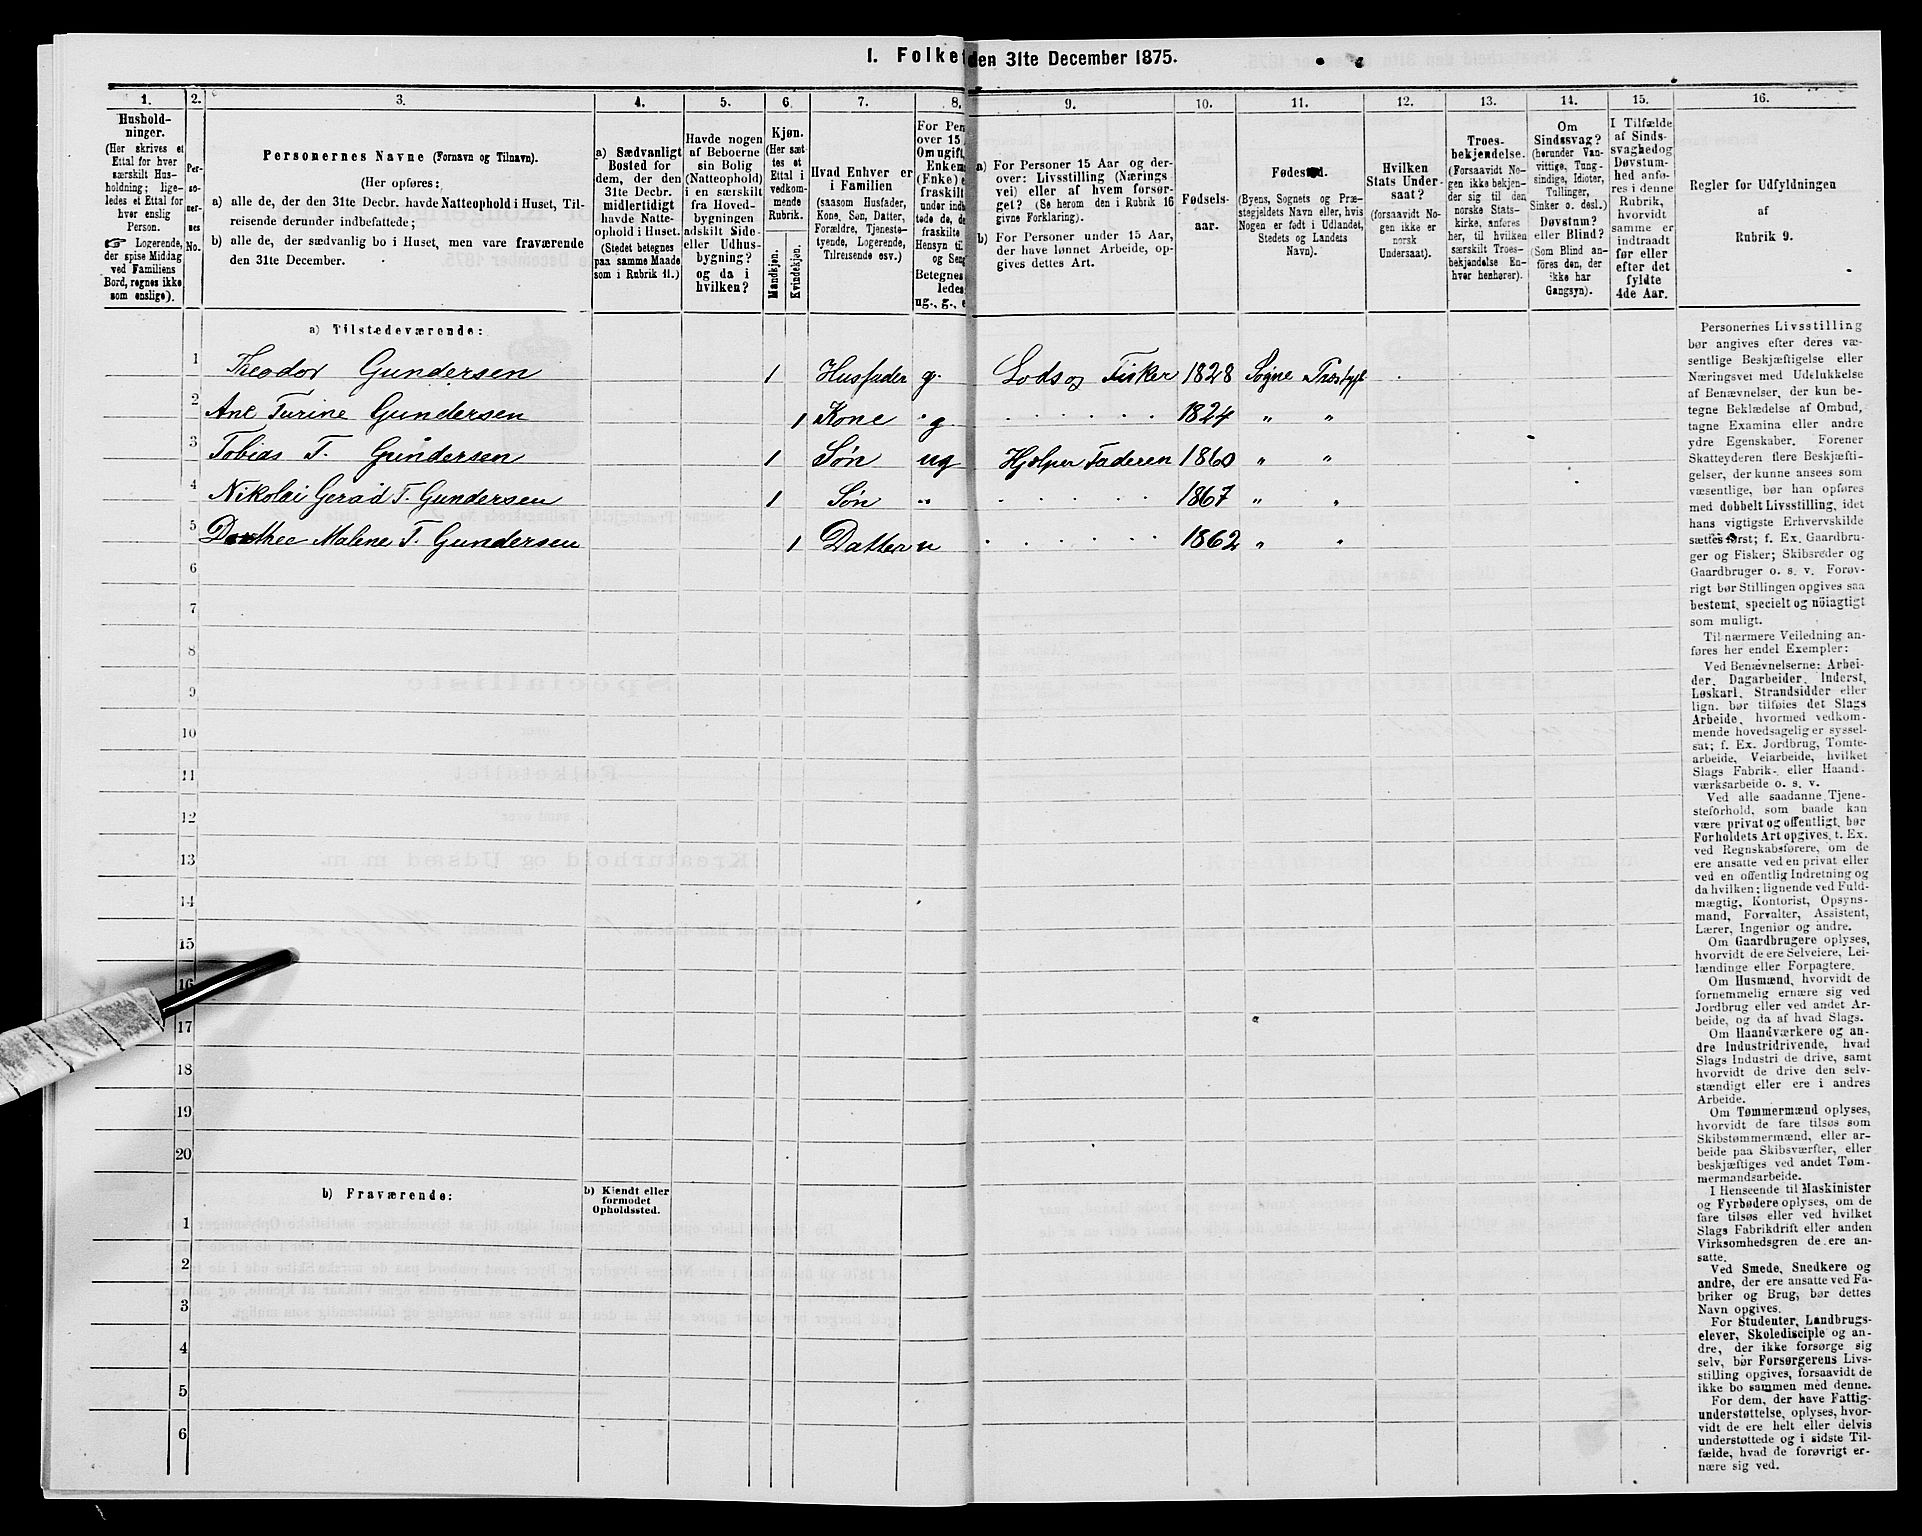 I. Folket den 31te December 1875.
1. 2. 3. 4. 5. 6. 7. 8. 9. 10. 11. 12. 13. 14. 15. 16.
Hushold-
ninger.
(Her skrives et
Ettal for hver
særskilt Hus-
holdning; lige-
ledes et Ettal for
hver enslig
Person.
☞ Logerende,
der spise Middag
ved Familiens
Bord, regnes ikke
som enslige).
Per-
so-
ner-
nes
No.
Personernes Navne (Fornavn og Tilnavn).
(Her opføres:
a) alle de, der den 31te Decbr. havde Natteophold i Huset, Til-
reisende derunder indbefattede;
b) alle de, der sædvanlig bo i Huset, men vare fraværende
den 31te December.
a) Sædvanligt
Bosted for
dem, der den
31te Decbr.
midlertidigt
havde Natte-
ophold i Huset.
(Stedet betegnes
paa samme Maade
som i Rubrik 11.)
Havde nogen
af Beboerne
sin Bolig
(Natteophold)
i en særskilt
fra Hoved-
bygningen
adskilt Side-
eller Udhus-
bygning?
og da i
hvilken?
Kjøn.
(Her sæt-
tes et
Ettal i
vedkom-
mende
Rubrik.
Mandkjøn.
Kvindekjøn.
Hvad Enhver er
i Familien
(saasom Husfader,
Kone, Søn, Datter,
Forældre, Tjeneste-
tyende, Logerende,
Tilreisende osv.)
For Per
over 15
Om ugift,
Enken
(Fnke) e
fraskilt
under indb
tede de, de
fraskilte
Hensyn til
og Seng
Betegnes
ledes
ug., g., e
a) For Personer 15 Aar og der-
over: Livsstilling (Nærings
vei) eller af hvem forsør-
get? (Se herom den i Rubrik 16
givne Forklaring).
b) For Personer under 15 Aar,
der have lønnet Arbeide, op-
gives dettes Art.
Fødsels-
aar.
Fødested.
(Byens, Sognets og Præ-
stegjeldets Navn eller, hvis
Nogen er født i Udlandet,
Stedets og Landets
Navn).
Hvilken
Stats Under-
saat?
(forsaavidt No-
gen ikke er
norsk
Undersaat).
Troes-
bekjendelse.
(Forsaavidt No-
gen ikke bekjen-
der sig til den
norske Stats-
kirke, anføres
her, til hvilken
særskilt Troes-
bekjendelse En-
hver henhører).
Om
Sindssvag?
(herunder Van-
vittige, Tung-
sindige, Idioter,
Tullinger,
Sinker o. desl.)
Døvstum?
eller Blind?
(Som Blind an-
føres den, der
ikke har
Gangsyn).
I Tilfælde
af Sinds-
svaghed og
Døvstum-
hed anfø-
res i denne
Rubrik,
hvorvidt
samme er
indtraadt
før eller
efter det
fyldte
4de Aar.
Regler for Udfyldningen
af
Rubrik 9.
a) Tilstedeværende:
1 Theodor Gundersen 1 Husfader g. Lods og Fisker 1828 Sogne Præstgjl
2 Ane Turine Gundersen 1 Kone g 1824 " "
3 Tobias T. Gundersen 1 Søn ug Hjælper Faderen 1860 " "
4 Nikolai Gerad T. Gundersen 1 Søn " 1867 " "
5 Dorthee Malene T. Gundersen 1 Datter u 1862 " "
6
7
8
9
10
11
12
13
14
15
16
17
18
19
20
b) Fraværende:
b) Kjendt eller
formodet
Opholdssted.
1
2
3
4
5
6
Personernes Livsstilling
bør angives efter deres væ-
sentlige Beskjæftigelse eller
Næringsvei med Udelukkelse
af Benævnelser, der kun be-
tegne Beklædelse af Ombud,
tagne Examina eller andre
ydre Egenskaber. Forener
Skatteyderen flere Beskjæfti-
gelser, der kunne ansees som
væsentlige, bør han opføres
med dobbelt Livsstilling, idet
hans vigtigste Erhvervskilde
sættes først; f. Ex. Gaardbru-
ger og Fisker; Skibsreder og
Gaardbruger o. s. v. Forøv-
rigt bør Stillingen opgives saa
bestemt, specielt og nöiagtigt
som muligt.
Til nærmere Veiledning an-
føres her endel Exempler:
Ved Benævnelserne: Arbei-
der, Dagarbeider, Inderst,
Løskarl, Strandsidder eller
lign. bør tilføies det Slags
Arbeide, hvormed vedkom-
mende hovedsagelig er syssel-
sat; f. Ex. Jordbrug, Tomte-
arbeide, Veiarbeide, hvilket
Slags Fabrik- eller Haand-
værksarbeide o. s. v.
Ved alle saadanne Tjene-
steforhold, som baade kan
være privat og offentligt, bør
Forholdets Art opgives, t. Ex.
ved Regnskabsførere, om de
ere ansatte ved en privat eller
ved en offentlig Indretning og
da hvilken; lignende ved Fuld-
mægtig, Kontorist, Opsyns-
mand, Forvalter, Assistent,
Lærer, Ingeniør og andre.
Om Gaardbrugere oplyses,
hvorvidt de ere Selveiere, Lei-
lændinge eller Forpagtere.
Om Husmænd, hvorvidt de
fornemmelig ernære sig ved
Jordbrug eller ved andet Ar-
beide, og da af hvad Slags.
Om Haandværkere og an-
dre Industridrivende, hvad
Slags Industri de drive, samt
hvorvidt de drive den selv-
stændigt eller ere i andres
Arbeide.
Om Tømmermænd oplyses,
hvorvidt de fare tilsøs som
Skibstømmermænd, eller ar-
beide paa Skibsværfter, eller
beskjæftiges ved andet Tøm-
mermandsarbeide.
I Henseende til Maskinister
og Fyrbødere oplyses, om de
fare tilsøs eller ved hvilket
Slags Fabrikdrift eller anden
Virksomhedsgren de ere an-
satte.
Ved Smede, Snedkere og
andre, der ere ansatte ved Fa-
briker og Brug, bør dettes
Navn opgives.
For Studenter, Landbrugs-
elever, Skoledisciple og an-
dre, der ikke forsørge sig
selv, bør Forsørgerens Livs-
stilling opgives, forsaavidt de
ikke bo sammen med denne.
For dem, der have Fattig-
understøttelse, oplyses, hvor-
vidt de ere helt eller delvis
understøttede og i sidste Til-
fælde, hvad de forøvrigt er-
nære sig ved.